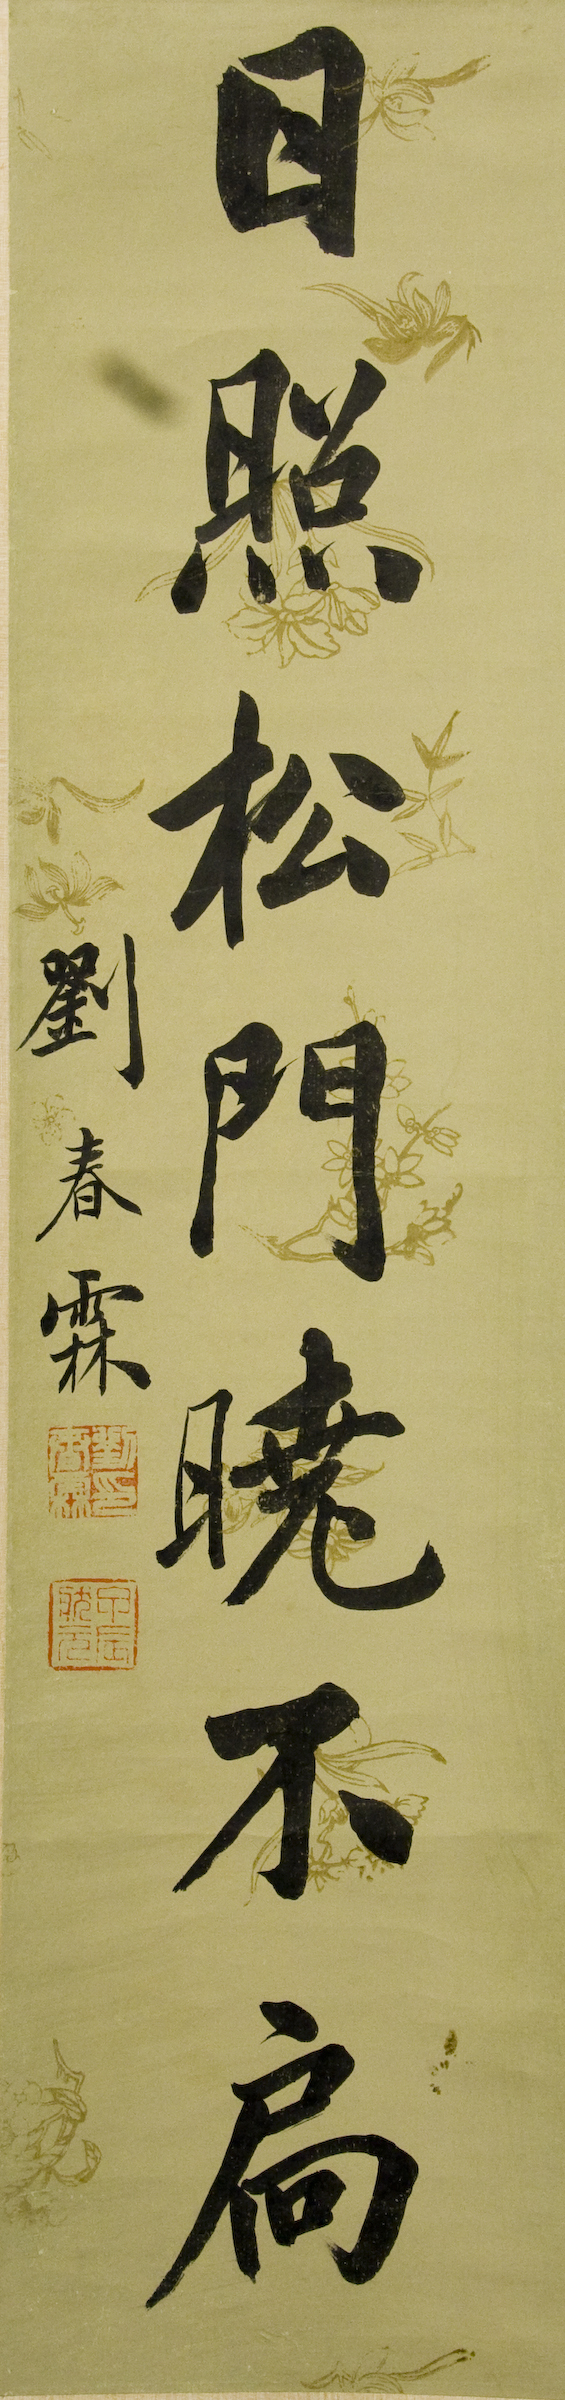 日照松門曉不扃
劉春霖
劉春霖印
甲辰狀元